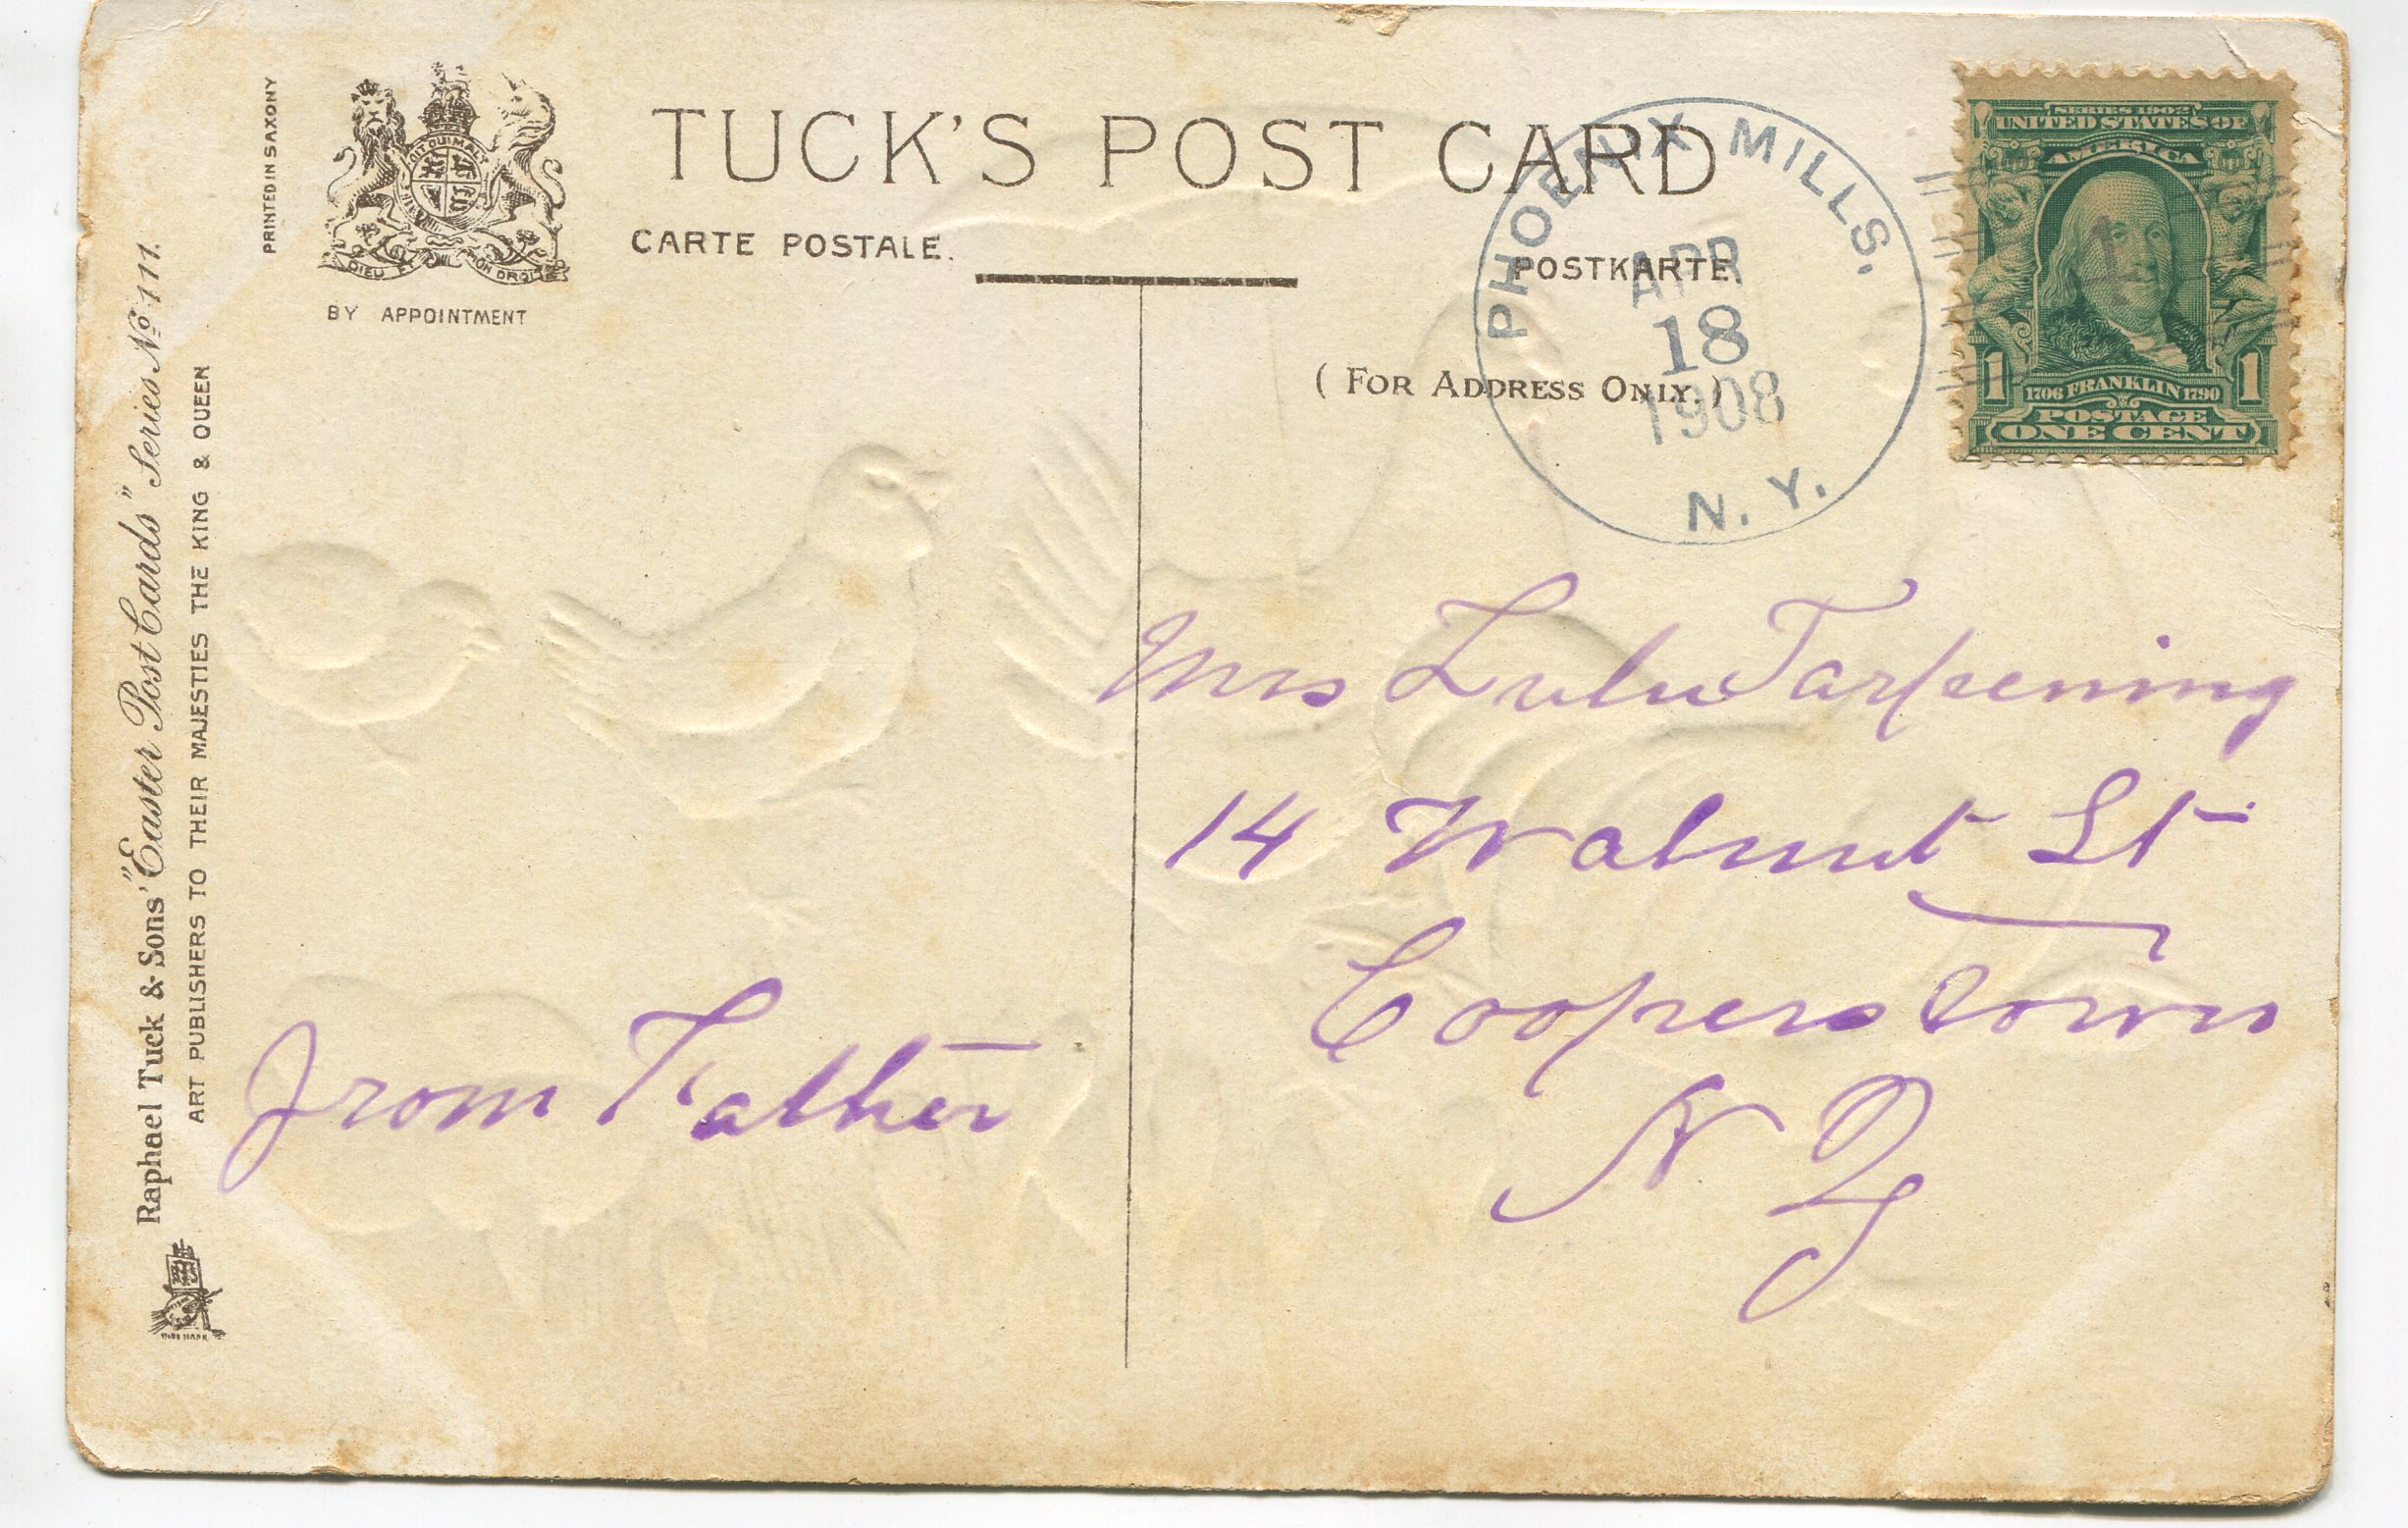 PRINTED IN SAXONY
DIEU ET MON DROIT
BY APPOINTMENT
TUCK'S POST CARD
CARTE POSTALE.
POSTKARTE.
(FOR ADDRESS ONLY.)
PHOENIX MILLS.
APR
18
1908
N. Y.
SERIES 1902
UNITED STATES OF
AMERICA
1706 FRANKLIN 1790
1 1
POSTAGE
ONE CENT
Raphael Tuck & Sons' "Easter Post Cards" Series No 111.
ART PUBLISHERS TO THEIR MAJESTIES THE KING & QUEEN
From Father
Mrs Lulu Tarpening
14 Walnut St
Cooperstown
N Y